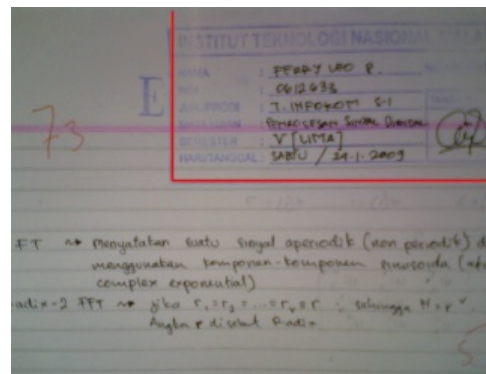 INSTITUT TEKNOLOGI NASIONAL
NAMA : FERRY LEO P.
NIM : 0612633
JUR./PRODI : T. INFOKOM S-1
: PEMROSESAN SINYAL DIGITAL
SEMESTER : V [LIMA]
HARI/TANGGAL : SABTU / 24-1-2009
E
73
FT ~> Menyatakan suatu sinyal aperiodik (non periodik) d
menggunakan komponen-komponen sinusoida
complex exponential)
adix-2 FFT ~> jika r₁=r₂=...=rᵥ=r sehingga N=rᵛ
Angka r disebut Radix
5